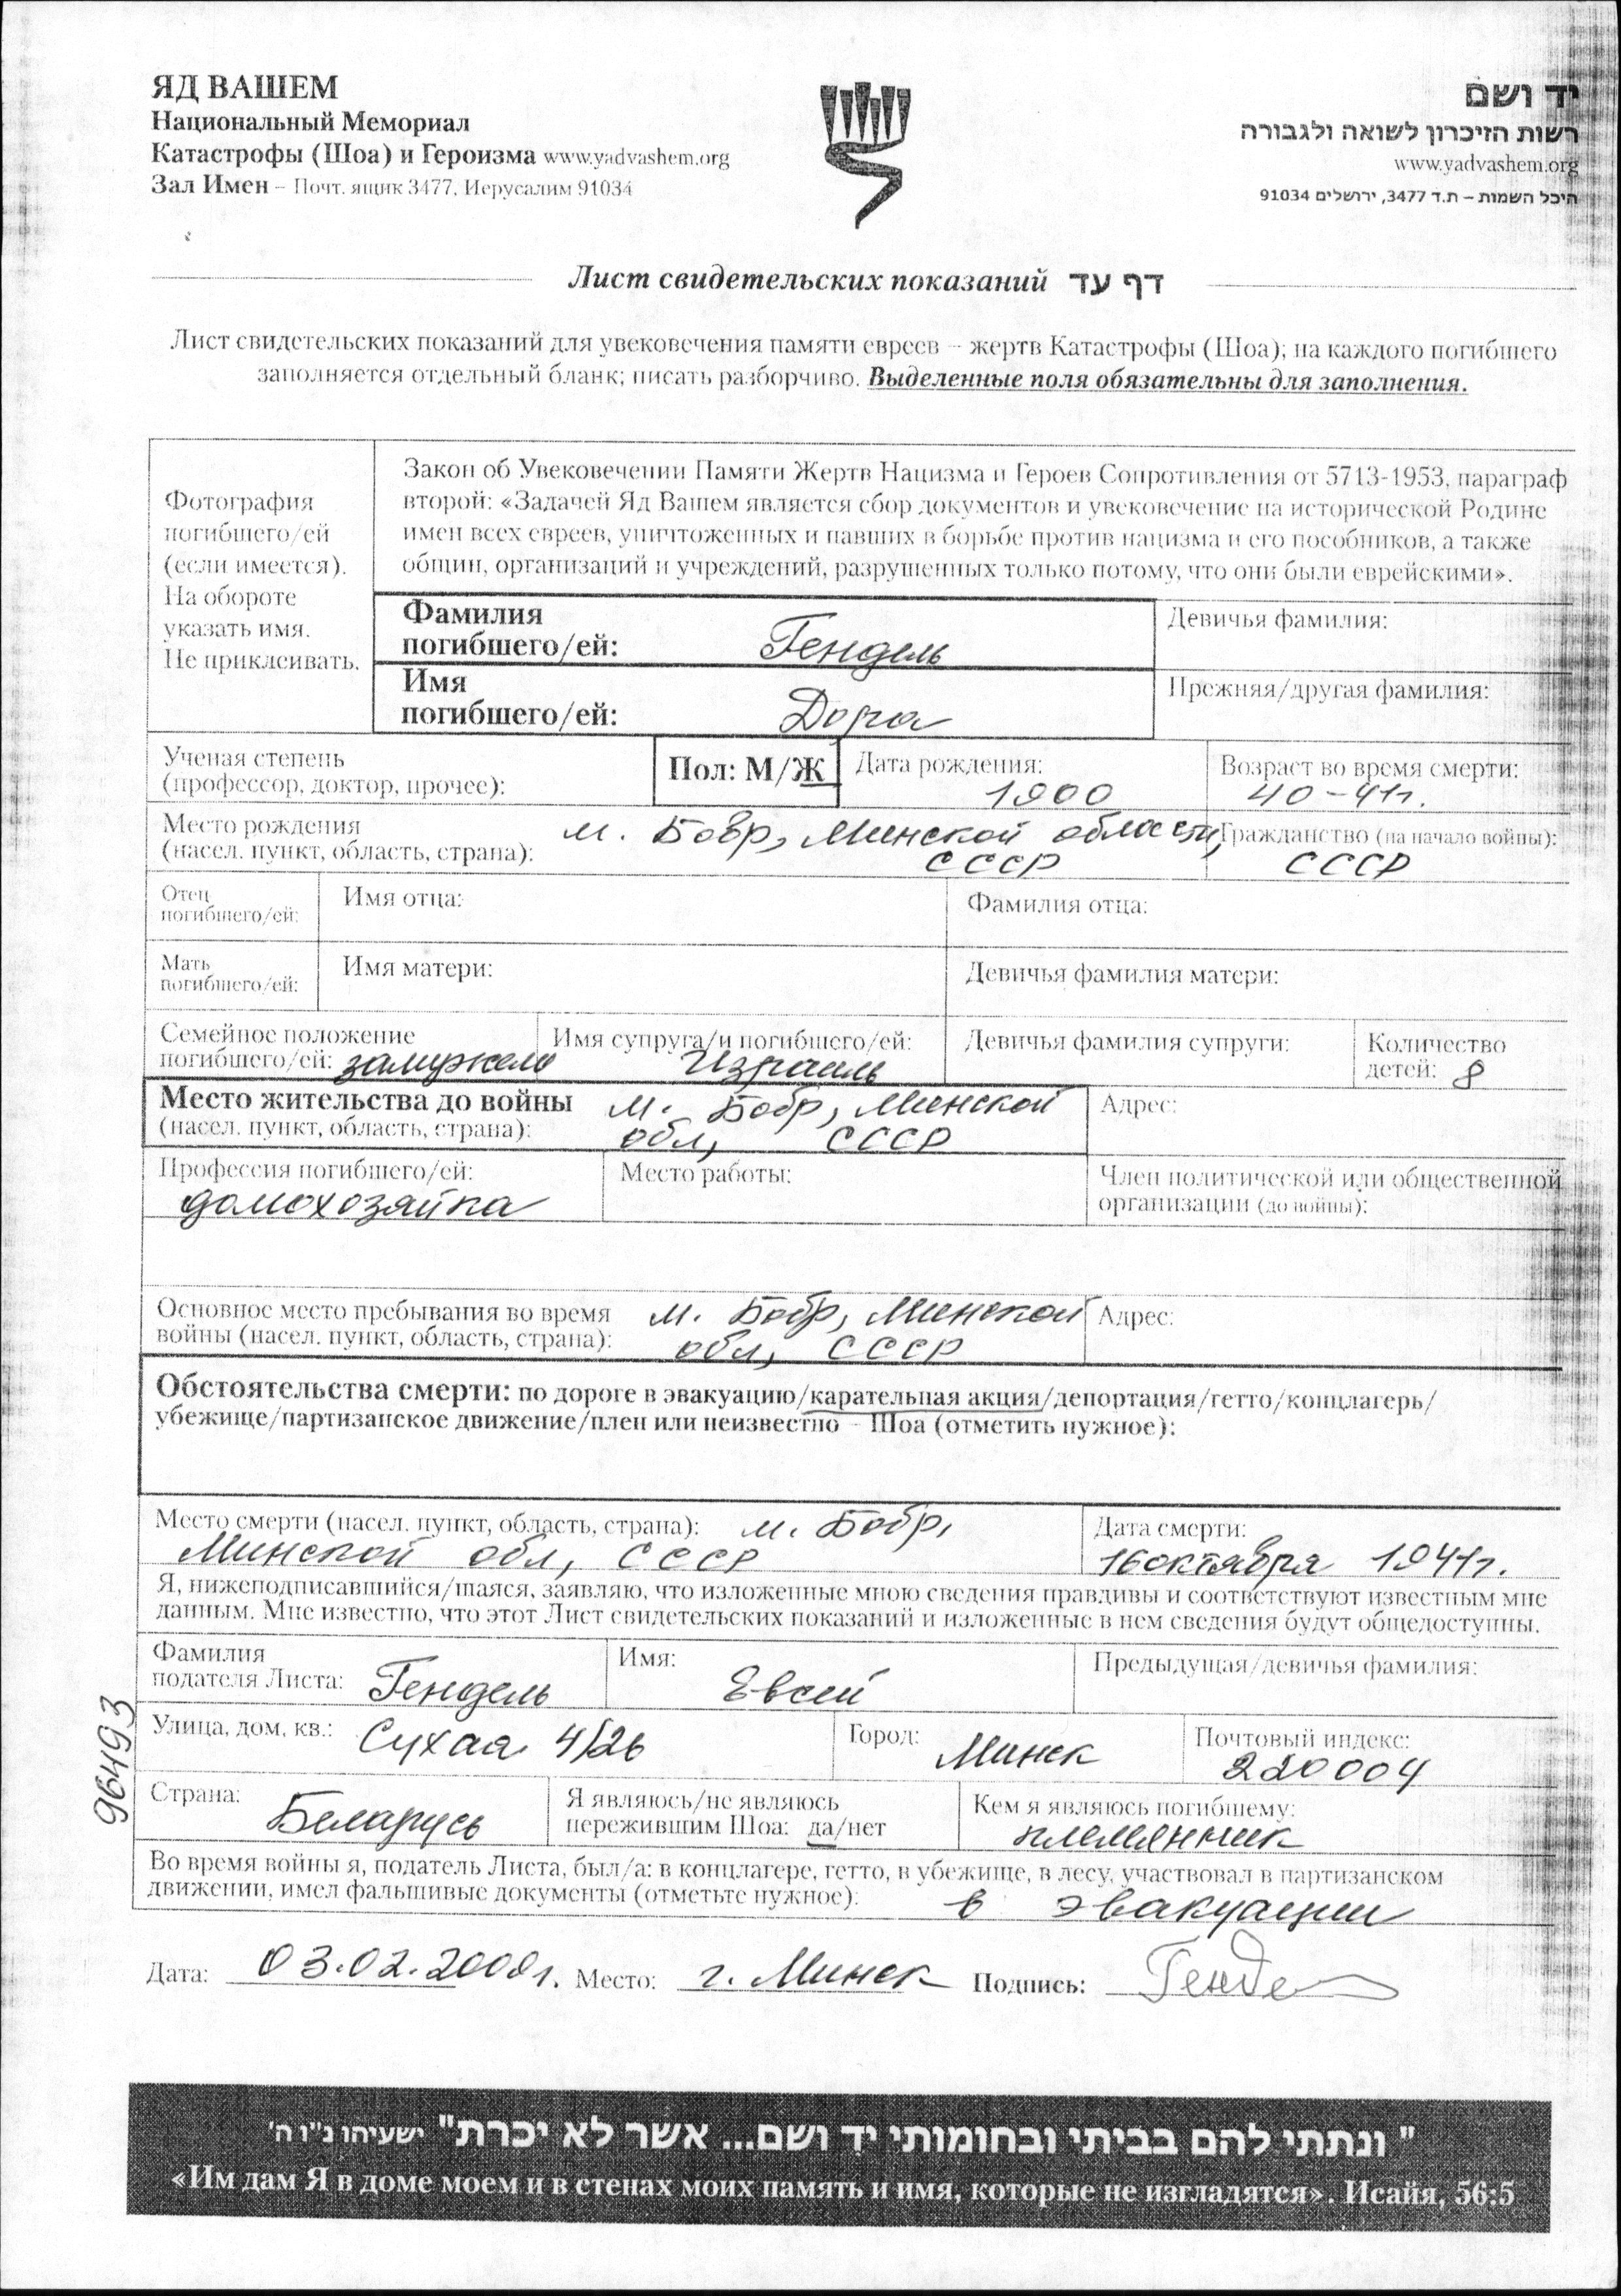 ЯД ВАШЕМ
Национальный Мемориал
Катастрофы (Шоа) и Героизма www.yadvashem.org
Зал Имен – Почт. ящик 3477, Иерусалим 91034
יד ושם
רשות הזיכרון לשואה ולגבורה
www.yadvashem.org
היכל השמות – ת.ד 3477, ירושלים 91034
Лист свидетельских показаний דף עד
Лист свидетельских показаний для увековечения памяти евреев – жертв Катастрофы (Шоа); на каждого погибшего
заполняется отдельный бланк; писать разборчиво. Выделенные поля обязательны для заполнения.
Фотография
погибшего/ей
(если имеется).
На обороте
указать имя.
Не приклеивать.
Закон об Увековечении Памяти Жертв Нацизма и Героев Сопротивления от 5713-1953, параграф
второй: «Задачей Яд Вашем является сбор документов и увековечение на исторической Родине
имен всех евреев, уничтоженных и павших в борьбе против нацизма и его пособников, а также
общин, организаций и учреждений, разрушенных только потому, что они были еврейскими».
Фамилия
погибшего/ей: Гендель
Девичья фамилия:
Имя
погибшего/ей: Дора
Прежняя/другая фамилия:
Ученая степень
(профессор, доктор, прочее):
Пол: М/Ж
Дата рождения:
1900
Возраст во время смерти:
40-41г.
Место рождения
(насел. пункт, область, страна):
м. Бобр, Минской области,
СССР
Гражданство (на начало войны):
СССР
Отец
погибшего/ей:
Имя отца:
Фамилия отца:
Мать
погибшего/ей:
Имя матери:
Девичья фамилия матери:
Семейное положение
погибшего/ей: замужем
Имя супруга/и погибшего/ей:
Израиль
Девичья фамилия супруги:
Количество
детей: 8
Место жительства до войны
(насел. пункт, область, страна):
м. Бобр, Минской
обл, СССР
Адрес:
Профессия погибшего/ей:
домохозяйка
Место работы:
Член политической или общественной
организации (до войны):
Основное место пребывания во время
войны (насел. пункт, область, страна):
м. Бобр, Минской
обл, СССР
Адрес:
Обстоятельства смерти: по дороге в эвакуацию/карательная акция/депортация/гетто/концлагерь/
убежище/партизанское движение/плен или неизвестно – Шоа (отметить нужное):
Место смерти (насел. пункт, область, страна): м. Бобр,
Минской обл, СССР
Дата смерти:
16 октября 1941г.
Я, нижеподписавшийся/шаяся, заявляю, что изложенные мною сведения правдивы и соответствуют известным мне
данным. Мне известно, что этот Лист свидетельских показаний и изложенные в нем сведения будут общедоступны.
Фамилия
подателя Листа: Гендель
Имя:
Евсей
Предыдущая/девичья фамилия:
Улица, дом, кв.: Сухая 4/26
Город:
Минск
Почтовый индекс:
220004
Страна:
Беларусь
Я являюсь/не являюсь
пережившим Шоа: да/нет
Кем я являюсь погибшему:
племянник
Во время войны я, податель Листа, был/а: в концлагере, гетто, в убежище, в лесу, участвовал в партизанском
движении, имел фальшивые документы (отметьте нужное): в эвакуации
Дата: 03.02.2009г. Место: г. Минск Подпись: Генде
96493
" ונתתי להם בביתי ובחומותי יד ושם... אשר לא יכרת" ישעיהו נ"ו ה'
«Им дам Я в доме моем и в стенах моих память и имя, которые не изгладятся». Исайя, 56:5